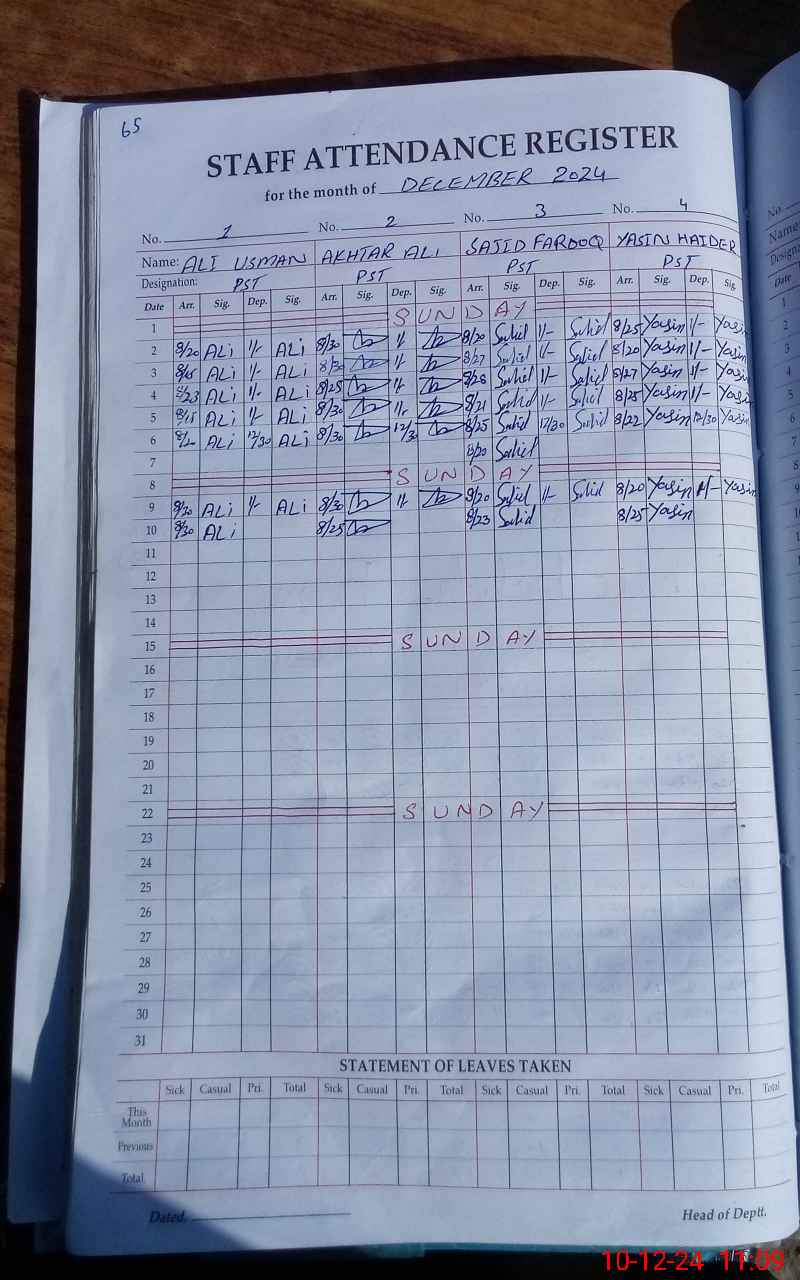 65
STAFF ATTENDANCE REGISTER
for the month of DECEMBER 2024
No. 1 No. 2 No. 3 No. 4
Name: ALI USMAN AKHTAR ALI SAJID FAROOQ YASIN HAIDER
Designation: PST PST PST PST
Date Arr. Sig. Dep. Sig. Arr. Sig. Dep. Sig. Arr. Sig. Dep. Sig. Arr. Sig. Dep. Sig.
1 SUNDAY
2 8/20 ALi 1/- ALi 8/30 1/- 8/20 Sajid 1/- Sajid 8/25 Yasin 1/- Yasin
3 8/15 ALi 1/- ALi 8/30 1/- 8/27 Sajid 1/- Sajid 8/20 Yasin 1/- Yasin
4 8/23 ALi 1/- ALi 8/25 1/- 8/28 Sajid 1/- Sajid 8/27 Yasin 1/- Yasin
5 8/15 ALi 1/- ALi 8/30 1/- 8/21 Sajid 1/- Sajid 8/25 Yasin 1/- Yasin
6 ALi 12/30 ALi 8/30 12/3 8/25 Sajid 12/30 Sajid 8/22 Yasin 12/30 Yasin
7 8/20 Sajid
8 SUNDAY
9 8/30 ALi 1/- ALi 8/30 1/- 8/20 Sajid 1/- Sajid 8/20 Yasin 1/- Yasin
10 8/30 ALi 8/25 8/23 Sajid 8/25 Yasin
11
12
13
14
15 SUNDAY
16
17
18
19
20
21
22 SUNDAY
23
24
25
26
27
28
29
30
31
STATEMENT OF LEAVES TAKEN
Sick Casual Pri. Total Sick Casual Pri. Total Sick Casual Pri. Total Sick Casual Pri. Total
This Month
Previous
Total
Dated. Head of Deptt.
10-12-24 11:09